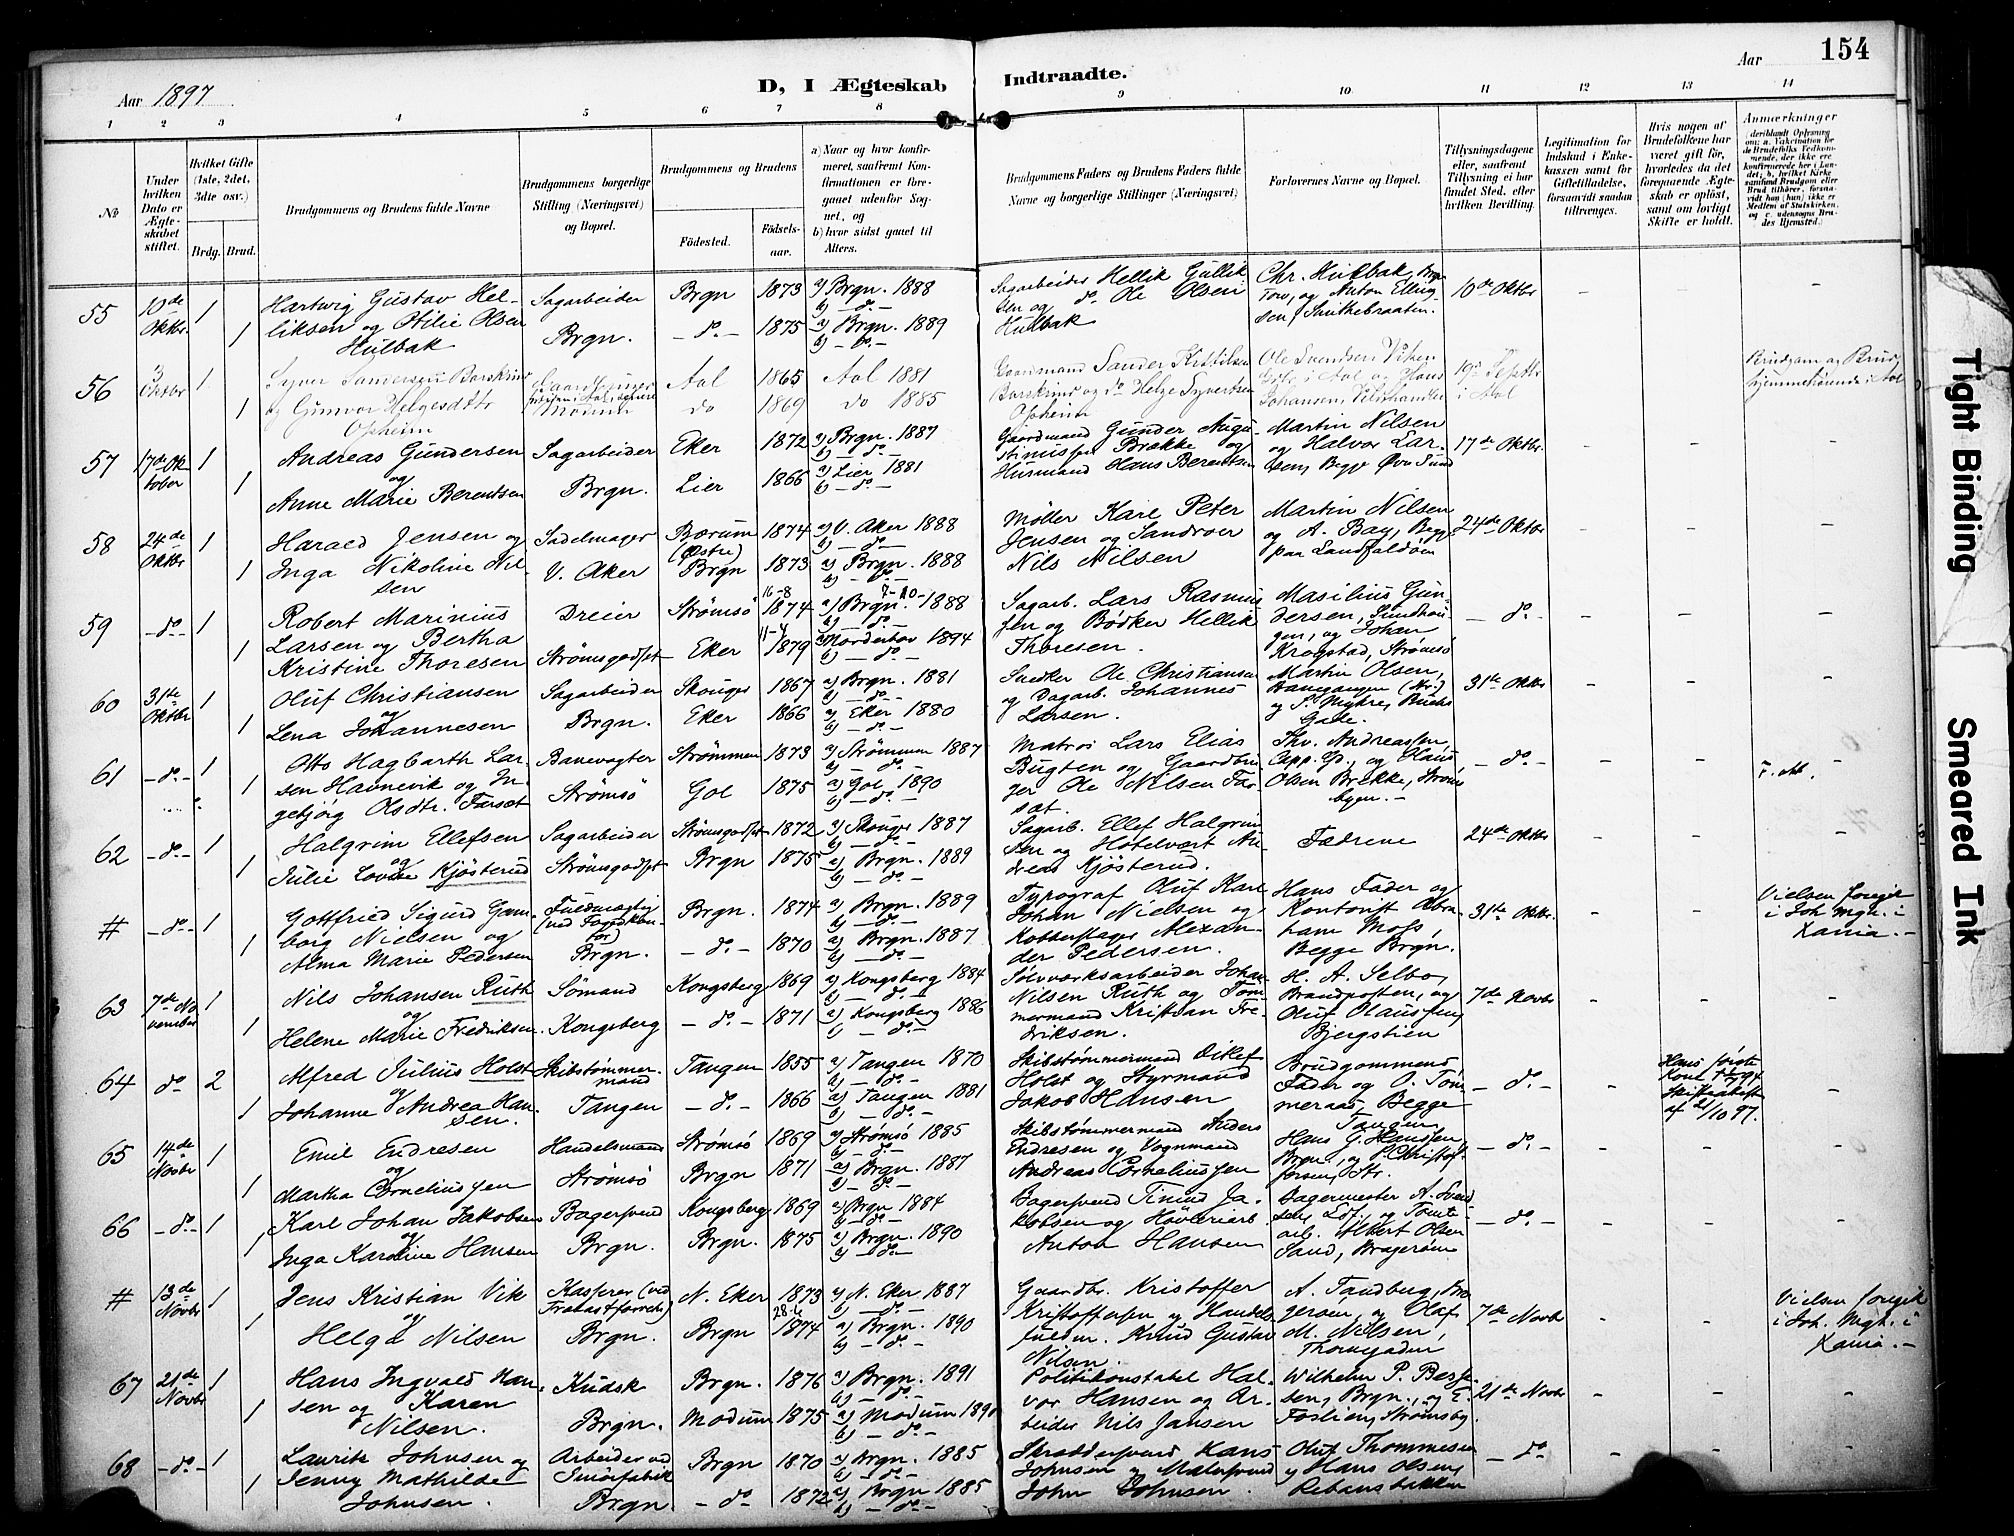 Aar 1897
D, I Ægteskab
Indtraadte.
Aar
154
1 2 3 4 5 6 7 8 9 10 11 12 13 14
№
Under hvilken Dato er Ægteskabet stiftet.
Hvilket Gifte (1ste, 2det, 3die osv.)
Brdg. Brud.
Brudgommens og Brudens fulde Navne
Brudgommens borgerlige Stilling (Næringsvei) og Bopæl.
Brudgommens og Brudens
Födested.
Födselsaar.
a) Naar og hvor konfirmeret, saafremt Konfirmationen er foregaaet udenfor Sognet, og
b) hvor sidst gaaet til Alters.
Brudgommens Faders og Brudens Faders fulde Navne og borgerlige Stillinger (Næringsvei)
Forlovernes Navne og Bopæl.
Tillysningsdagene eller, saafremt Tillysning ei har fundet Sted, efter hvilken Bevilling.
Legitimation for Indskud i Enkekassen samt for Giftetilladelse, forsaavidt saadan tiltrænges.
Hvis nogen af Brudefolkene har været gift før, hvorledes da det foregaaende Ægteskab er opløst, samt om lovligt Skifte er holdt.
Anmærkninger
55 10de Oktbr. 1 1 Hartwig Gustav Helliksen og Otilie Olsen Hulbak
Sagarbeider Brgn. Brgn 1873 a) Brgn. 1888 b) - do. -
- do. - 1875 a) Brgn. 1889 b) - do. -
Sagarbeider Hellik Gulliksen og do. Ole Olsen Hulbak
10de Oktbr
56 3 Oktbr 1 1 Syver Sandersen Barskrind og Gunvor Helgesdtr Opheim
Aal 1865 Aal 1881
do 1869 do 1885
Gaardmand Sander Kittilsen Barskrind og do Helge Syvertsen Opheim
Ole Svendsen Viken
i Aal
Brudgom og Brud hjemmehørende i Aal
57 17de Oktober 1 1 Andreas Gundersen og Anne Marie Berentsen
Sagarbeider Brgn. Eker 1872 a) Brgn. 1887 b) - do. -
Lier 1866 a) Lier 1881 b) - do. -
Gaardmand Gunder Augustinussen Brække og Husmand Hans Berentsen
Martin Nilsen og Halvor Larsen, Begge Øvre Sund
17de Oktbr.
58 24de Oktbr 1 1 Harald Jensen og Inga Nikoline Nilsen
Sadelmager V. Aker Bærum (Østre) 1874 a) V. Aker 1888 b) - do -
Brgn 1873 a) Brgn. 1888 b) - do. -
Møller Karl Peter Jensen og Sandroer Nils Nilsen
Martin Nilsen og A. Bay, Begge paa Landfaldøen
24de Oktbr
59 - do. - 1 1 Robert Marinius Larsen og Bertha Kristine Thoresen
Dreier Strømsgodset Strømsö 16-8 1874 a) Brgn. 7-10- 1888 b) - do. -
Eker 11-4 1879 a) Mordertov 1894 b) - do. -
Sagarb. Lars Rasmussen og Bødker Hellik Thoresen.
Masilius Gundersen, Sundhaugen, og Johan Krogstad, Strømsö
- do. -
60 31te Oktbr 1 1 Oluf Christiansen og Lena Johannesen
Sagarbeider Brgn. Skouger 1867 a) Brgn. 1881 b) - do. -
Eker 1866 a) Eker 1880 b) - do. -
Snedker Ole Christiansen og Dagarb. Johannes Larsen.
Martin Olsen, og P. Myhre, Buchs Gade.
31te Oktbr
61 - do. - 1 1 Otto Hagbarth Larsen Havnevik og Ingebjörg Olsdtr. Farset
Banevogter Strømsö Strømmen 1873 a) Strømmen 1887 b) - do. -
Gol 1875 a) Gol 1890 b) - do. -
Matros Lars Elias Bugten og Gaardbruger Ole Nilsen Farset.
Thv. Andreassen, og Olaus Olsen Brekke, Strømsbyen. -
- do. -
62 - do. - 1 1 Halgrim Ellefsen og Julie Lovise Kjösterud
Sagarbeider Strömsgodset Strömsgodset 1872 a) Skouger 1887 b) - do. -
Brgn 1875 a) Brgn. 1889 b) - do. -
Sagarb. Ellef Halgrimsen og Hotelvært Andreas Kjösterud.
Fædrene
24de Oktbr
# - do. - 1 1 Gottfried Sigurd Gamborg Nielsen og Alma Marie Pedersen
Fuldmægtig (ved Fogedkontor) Brgn. Brgn. 1874 a) Brgn. 1889 b) - do. -
- do. - 1870 a) Brgn. 1887 b) - do. -
Typograf Oluf Karl Johan Nielsen og Kobberslager Alexander Pedersen.
Hans Fader og Kontorist Abraham Moss, Begge Brgn.
31te Oktbr.
Vielsen foregik i Joh. Mgh. i Xania. -
63 7de November 1 1 Nils Johansen Ruth og Helene Marie Fredriksen.
Sömand Kongsberg Kongsberg 1869 a) Kongsberg 1884 b) - do. -
- do. - 1871 a) Kongsberg 1886 b) - do. -
Sølvværksarbeider Johan Nilsen Ruth og Tömmermand Kristian Fredriksen.
H. A. Selbo, Brandposten, og Oluf Olaussen, Bjergstien
7de Novbr
64 do 2 1 Alfred Julius Holst og Johanne Andrea Hansen.
Skibstømmermand Tangen Tangen 1855 a) Tangen 1870 b) - do. -
- do. - 1866 a) Tangen 1881 b) - do. -
Skibstømmermand Ditlef Holst og Styrmand Jakob Hansen
Brudgommens Fader og O. Tømmeraas, Begge Tangen
- do. -
Hans første Kone † 94 Skifteattest af 21/10 97.
65 14de Novbr 1 1 Emil Endresen og Martha Corneliussen
Handelsmand Strømsö Strømsö 1869 a) Strømsö 1885 b) - do. -
Brgn 1871 a) Brgn. 1887 b) - do. -
Skibstømmermand Anders Endresen og Vognmand Andreas Corneliussen
Hans G. Hanssen, Brgn., og P. Christoffersen, Str.
- do. -
66 - do. - 1 1 Karl Johan Jakobsen og Inga Karoline Hansen
Bagersvend Brgn. Kongsberg 1869 a) Brgn 1884 b) - do -
Brgn. 1875 a) Brgn. 1890 b) - do. -
Bagersvend Jakobsen og Höveriarb Anton Hansen
Bagermester A. Svendsen, og Tomtearb. Albert Olsen Sand, Bragerøen
- do. -
# 13de Novbr 1 1 Jens Kristian Vik og Helga Nilsen
Kasserer (ved Brgn. N. Eker 1873 a) N. Eker 1887 b) - do. -
Brgn 28-6 1874 a) Brgn. 1890 b) - do. -
Gaardbr. Kristoffer Kristoffersen og Handelsfuldm. Knud Gustav Nilsen.
A. Tandberg, Bragerøen, og Olaf M. Nilsen, Thornegaden
7de Novbr
Vielsen foregik i Joh. Mgh. i Xania. -
67 21de Novbr 1 1 Hans Ingvald Hansen og Karen Nilsen.
Kudsk Brgn. Brgn. 1876 a) Brgn. 1891 b) - do. -
Modum 1875 a) Modum 1890 b) - do. -
Politikonstabel Halvor Hansen og Arbeider Nils Jansen
Wilhelm P. Bessesen, Brgn., og E. Foslien, Strømsby
21de Novbr
68 - do. - 1 1 Lauritz Johnsen og Jenny Mathilde Johnsen.
Arbeider ved Brgn Brgn 1870 a) Brgn. 1885 b) - do. -
- do - 1872 a) Brgn 1885 b) - do. -
Skræddersvend Hans Johnsen og Malersvend John Johnsen.
Oluf Thommesen og Hans Olsen, Rebansbakken
- do. -
Tight Binding
Smeared Ink